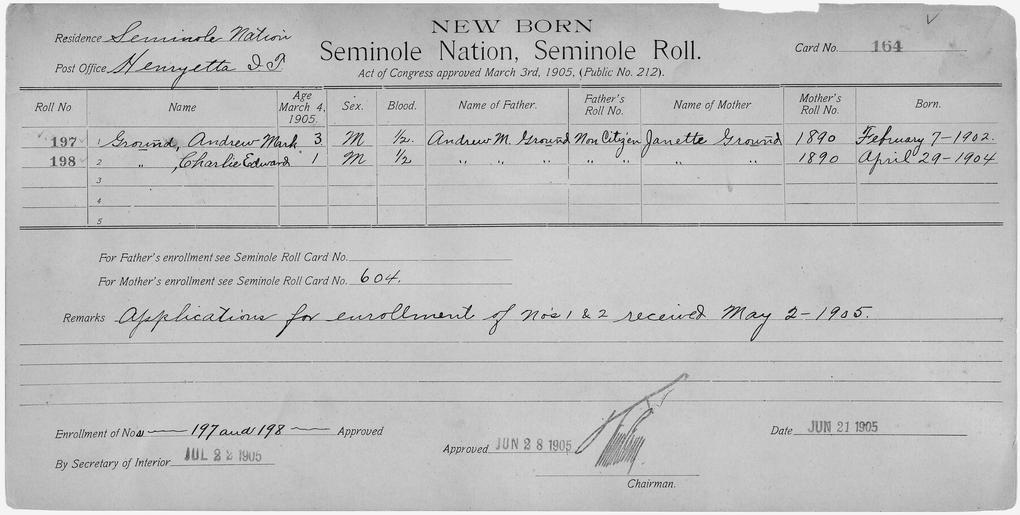 NEW BORN
Residence Seminole Nation
Seminole Nation, Seminole Roll.
Card No. 164
Post Office Henryetta I.T.
Act of Congress approved March 3rd, 1905, (Public No. 212).
Roll No Name Age March 4, 1905. Sex. Blood. Name of Father. Father's Roll No. Name of Mother Mother's Roll No. Born.
197 1 Ground, Andrew Mark 3 M 1/2. Andrew M. Ground Non Citizen Janette Ground 1890 February 7-1902.
198 2 " , Charlie Edward 1 M 1/2 " " " " " " " 1890 April 29-1904
3
4
5
For Father's enrollment see Seminole Roll Card No.
For Mother's enrollment see Seminole Roll Card No. 604.
Remarks Applications for enrollment of No's 1 & 2 received May 2-1905.
Enrollment of Nos 197 and 198 Approved
By Secretary of Interior JUL 22 1905
Approved JUN 28 1905
Chairman.
Date JUN 21 1905